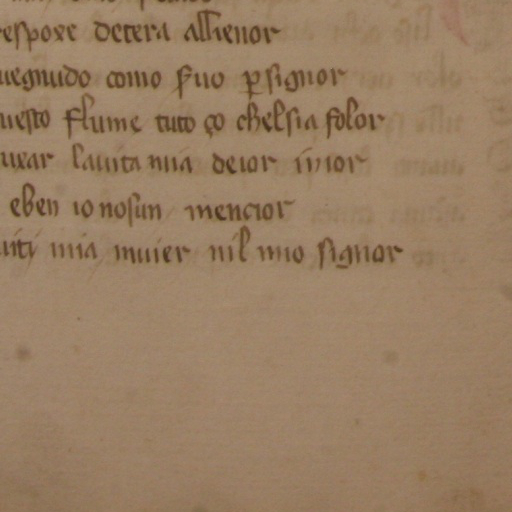 respoxe detera allienor
uegnudo como s̄uo ꝑsignor
uesto flume tuto ço chelsia folor
lauita mia deior
eben io nosun mencior
mia muier nil mio signor